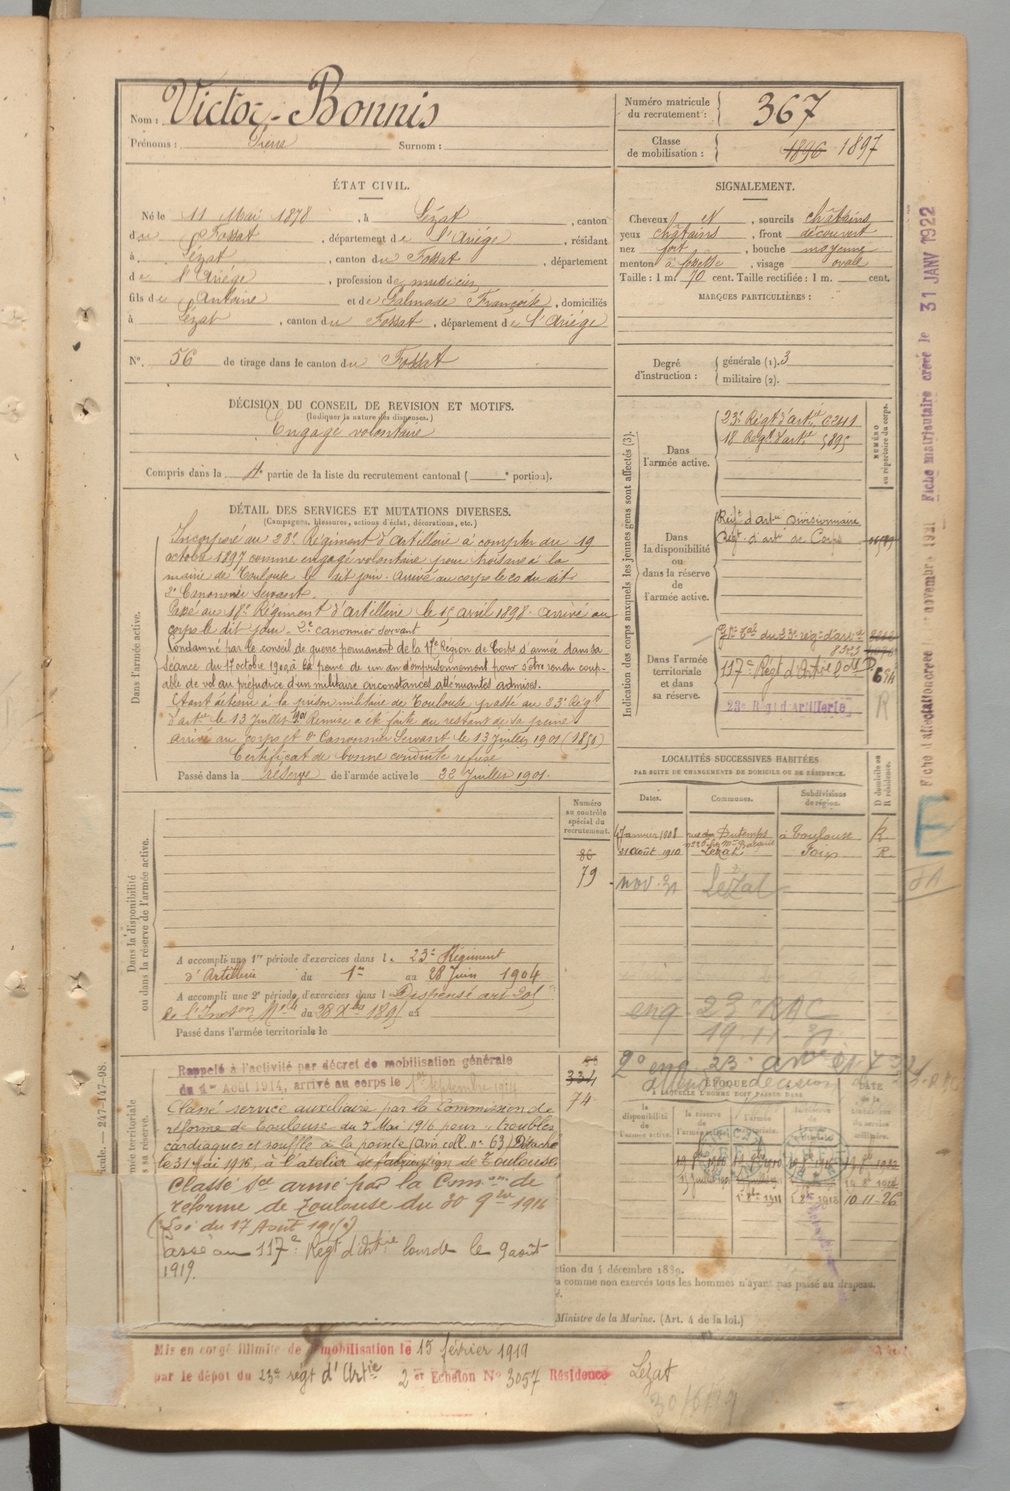 Nom : Victor-Bonnis
Prénoms : Pierre Surnom :
Numéro matricule du recrutement : 367
Classe de mobilisation : 1896 1897
ÉTAT CIVIL.
Né le 11 Mai 1878, à Lézat, canton
du Fossat, département de l'Ariège, résidant
à Lézat, canton du Fossat, département
de l'Ariège, profession de
fils de Antoine et de Palmade Françoise, domiciliés
à Lézat, canton du Fossat, département de l'Ariège
N° 56 de tirage dans le canton du Fossat
SIGNALEMENT.
Cheveux et N, sourcils châtains
yeux châtains, front découvert
nez fort, bouche moyenne
menton à fossette, visage ovale
Taille : 1 m. 70 cent. Taille rectifiée : 1 m. cent.
MARQUES PARTICULIÈRES :
Degré d'instruction : générale (1). 3
militaire (2).
DÉCISION DU CONSEIL DE REVISION ET MOTIFS.
(Indiquer la nature des dispenses.)
Engagé volontaire
Compris dans la 4e partie de la liste du recrutement cantonal ( e portion).
DÉTAIL DES SERVICES ET MUTATIONS DIVERSES.
(Campagnes, blessures, actions d'éclat, décorations, etc.)
Dans l'armée active.
Incorporé au 23e Régiment d'Artillerie à compter du 19
octobre 1897 comme engagé volontaire pour trois ans à la
mairie de Toulouse le dit jour. Arrivé au corps le 20 du dit.
2e Canonnier Servant.
Passé au 18e Régiment d'Artillerie le 15 avril 1898. Arrivé au
corps le dit jour. 2e canonnier servant
Condamné par le conseil de guerre permanent de la 17e Région de Corps d'armée dans sa
séance du 17 octobre à la peine de un an d'emprisonnement pour s'être rendu coup-
able de vol au préjudice d'un militaire circonstances atténuantes admises.
Étant détenu à la prison militaire de Toulouse passé au 23e Régt
d'artie le 13 Juillet 1901 Remise a été faite du restant de sa peine
Arrivé au corps et 2e Canonnier Servant le 13 Juillet 1901
Certificat de bonne conduite refusé
Passé dans la réserve de l'armée active le 22 Juillet 1901.
Indication des corps auxquels les jeunes gens sont affectés (3).
NUMÉRO au répertoire du corps.
Dans l'armée active.
23e Régt d'artie 0241
18 Régt d'artie 5895
Dans la disponibilité ou dans la réserve de l'armée active.
Régt d'artie divisionnaire
Régt d'artie de Corps
Dans l'armée territoriale et dans sa réserve.
du 23e rég. d'artie
117e Régt d'Artie
23e Régt d'artillerie
R
LOCALITÉS SUCCESSIVES HABITÉES
PAR SUITE DE CHANGEMENTS DE DOMICILE OU DE RÉSIDENCE.
Dates. Communes. Subdivisions de région. D domicile ou R résidence.
Janvier 1908 rue du Printemps à Toulouse R
21 août 1910 Lézat Foix R
nov. 31 Lézat
Dans la disponibilité ou dans la réserve de l'armée active.
Numéro au contrôle spécial du recrutement.
86
79
A accompli une 1re période d'exercices dans le 23e Régiment
d'Artillerie du 1er au 28 Juin 1904
A accompli une 2e période d'exercices dans l Dispensé art 205
de l'Inston Melle du 28 1895 au
Passé dans l'armée territoriale le
334
74
Rappelé à l'activité par décret de mobilisation générale
du 1er Août 1914, arrivé au corps le 1er Septembre 1914
Classé service auxiliaire par la Commission de
réforme de Toulouse du 2 Mai 1916 pour : troubles
cardiaques et souffle à la pointe (avis coll. n° 63) Détaché
le 31 Mai 1916, à l'atelier de fabrication de Toulouse
Classé sce armé par la Comon de
réforme de Toulouse du 30 9bre 1916
(Loi du 17 Août 1915)
passé au 117e Régt d'Artie lourde le 9 août
1919.
eng 23e RAC
19-11-31
ÉPOQUE
À LAQUELLE L'HOMME DOIT PASSER DANS
DATE
10-11-26
tion du 4 décembre 1889.
a comme non exercés tous les hommes n'ayant pas passé au drapeau.
Ministre de la Marine. (Art. 4 de la loi.)
Mis en congé illimité de démobilisation le 15 février 1919
par le dépôt du 23e régt d'Artie 2e Echelon N° 3057 Résidence Lézat
30/6/19
Fiche matriculaire créée le 31 JANV 1922
Fiche d'affectation créée novembre 1921
E